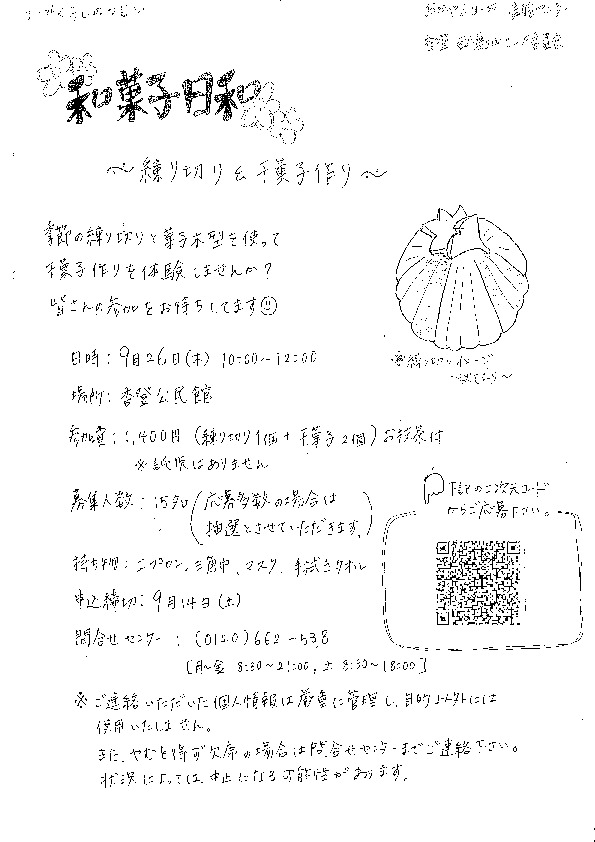 和菓子日和
～練り切り&干菓子作り～
季節の練り切りと菓子木型を使って
干菓子作りを体験しませんか?
皆さんの参加をお待ちしてます
日時:9月26日(木) 10:00～12:00
場所:香登公民館
参加費:1,400円 (練り切り1個+干菓子2個) お抹茶付
※託児はありません
募集人数:15名 (応募多数の場合は
抽選とさせていただきます。)
持ち物:エプロン、三角巾、マスク、手拭きタオル
申込締切:9月14日(土)
問合せセンター:(0120)662-538
[月～金 8:30～21:00, 土 8:30～18:00]
下記の二次元コード
からご応募下さい。
※ご連絡いただいた個人情報は厳重に管理し、目的以外には
使用いたしません。
また、やむを得ず欠席の場合は問合せセンターまでご連絡下さい。
状況によっては、中止になる可能性があります。